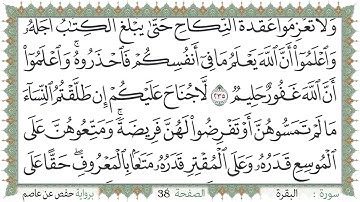 وَلَا تَعْزِمُوا۟ عُقْدَةَ ٱلنِّكَاحِ حَتَّىٰ يَبْلُغَ ٱلْكِتَٰبُ أَجَلَهُۥ
وَٱعْلَمُوٓا۟ أَنَّ ٱللَّهَ يَعْلَمُ مَا فِىٓ أَنفُسِكُمْ فَٱحْذَرُوهُ ۚ وَٱعْلَمُوٓا۟
أَنَّ ٱللَّهَ غَفُورٌ حَلِيمٌ ٢٣٥ لَّا جُنَاحَ عَلَيْكُمْ إِن طَلَّقْتُمُ ٱلنِّسَآءَ
مَا لَمْ تَمَسُّوهُنَّ أَوْ تَفْرِضُوا۟ لَهُنَّ فَرِيضَةً ۚ وَمَتِّعُوهُنَّ عَلَى
ٱلْمُوسِعِ قَدَرُهُۥ وَعَلَى ٱلْمُقْتِرِ قَدَرُهُۥ مَتَٰعًۢا بِٱلْمَعْرُوفِ ۖ حَقًّا عَلَى
سورة : البقرة الصفحة 38 برواية حفص عن عاصم